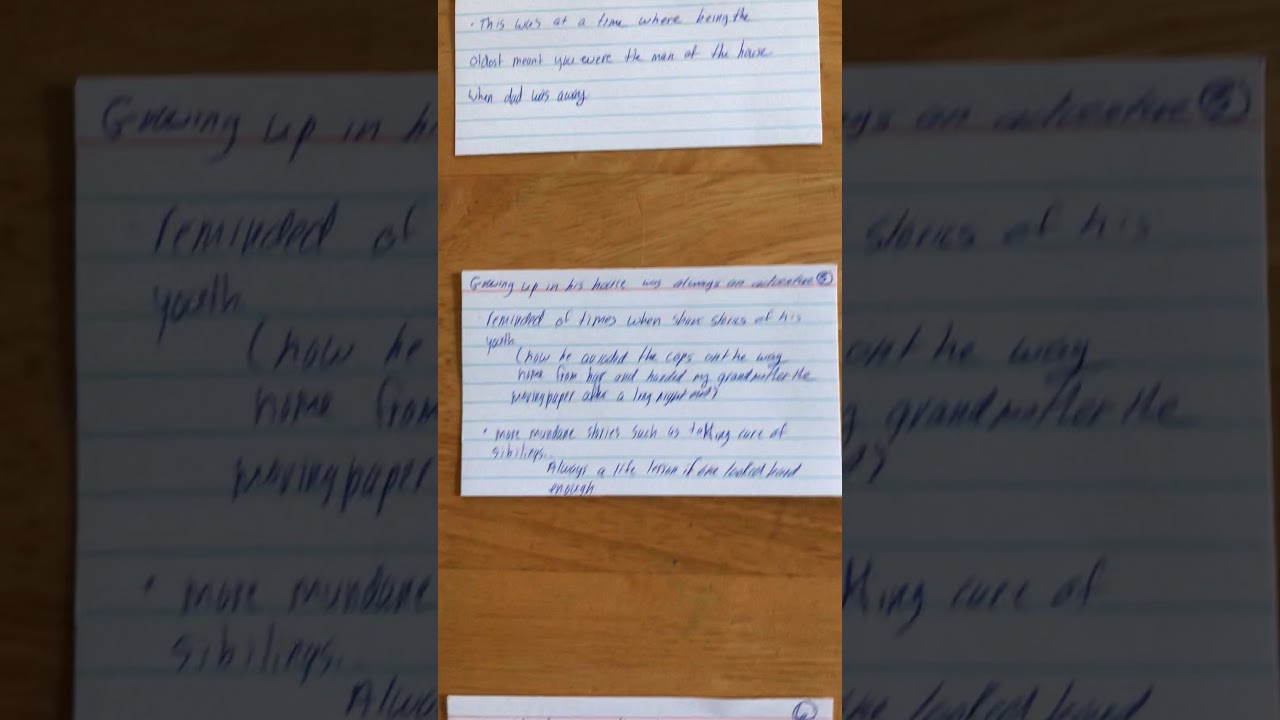 • This was at a time where being the
oldest meant you were the man of the house
when dad was away
Growing up in his house was always an adventure 5
reminded of times when share stories of his
youth
(how he avoided the cops on the way
home from bar and handed my grandmother the
morning paper after a long night out)
• more mundane stories such as taking care of
sibilings.
Always a life lesson if one looked hard
enough